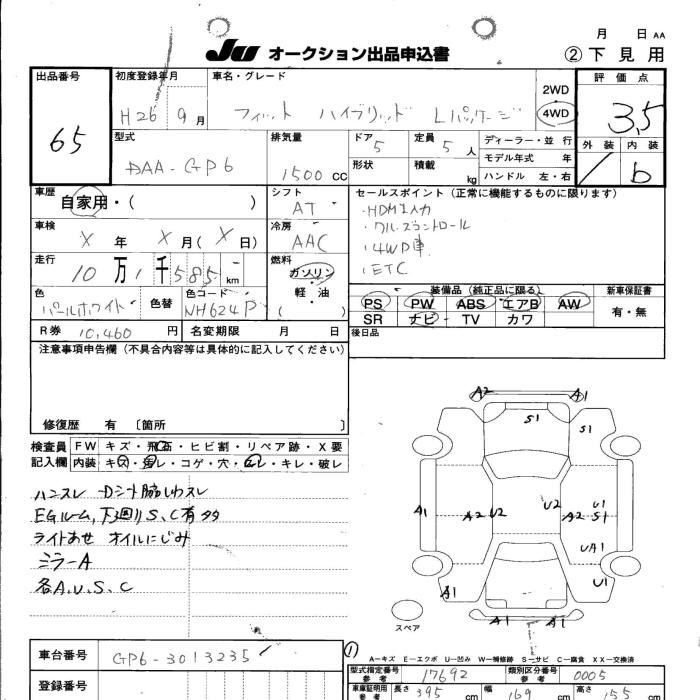 月 日 AA
JU オークション出品申込書 ②下見用
出品番号 65
初度登録年月 H26 9月
車名・グレード フィット ハイブリッド Lパッケージ
2WD 4WD
評価点 3.5
外装 内装 b
型式 DAA-GP6
排気量 1500 CC
ドア 5 定員 5人 ディーラー・並行
形状 積載 kg モデル年式 年
ハンドル 左・右
車歴 自家用・( )
シフト AT
セールスポイント(正常に機能するものに限ります)
・HDMI入力
・クルーズコントロール
・4WD車
・ETC
車検 X年 X月(X日)
冷房 AAC
走行 10万1千585km
燃料 ガソリン・軽・油 ( )
色 パールホワイト 色替 色コード NH624P
装備品(純正品に限る) 新車保証書
PS PW ABS エアB AW 有・無
SR ナビ TV カワ
R券 10,460円 名変期限 月 日
後日品
注意事項申告欄(不具合内容等は具体的に記入してください)
修復歴 有 〔箇所 〕
検査員記入欄
FW キズ・飛石・ヒビ割・リペア跡・X要
内装 キズ・汚レ・コゲ・穴・スレ・キレ・破レ
ハンスレ Dシート脇しわスレ
EGルーム,下廻りS、C有多
ライトあせ オイルにじみ
ミラーA
各A、U、S、C
A2 A1
S1 S1
A1 A2 U2 U2 A2 U1 S1
UA1
A1 U1
A1 A1
スペア
車台番号 GP6-3013235
①
A-キズ E-エクボ U-凹み W-補修跡 S-サビ C-腐食 XX-交換済
登録番号
型式指定番号 参考 17692 類別区分番号 参考 0005
車庫証明用 参考 長さ 395 cm 幅 169 cm 高さ 153 cm